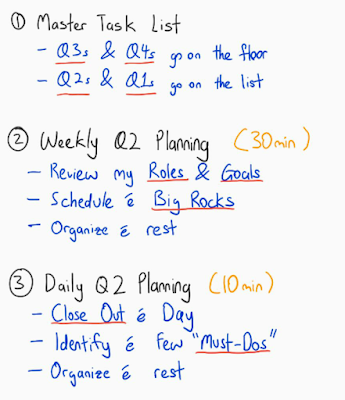 ① Master Task List
- Q3s & Q4s go on the floor
- Q2s & Q1s go on the list
② Weekly Q2 Planning (30min)
- Review my Roles & Goals
- Schedule é Big Rocks
- Organize é rest
③ Daily Q2 Planning (10min)
- Close Out é Day
- Identify é Few "Must-Dos"
- Organize é rest